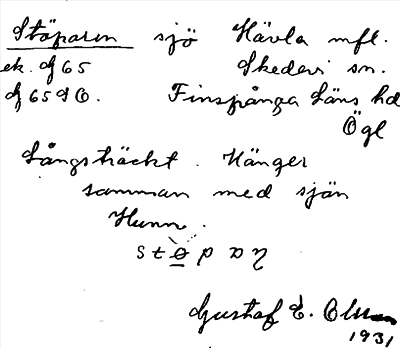 Stöparen sjö Hävla mfl.
ek. Ef 65 Skedevi sn.
Ef 65 SO. Finspånga läns hd
Ögl
Långsträckt. Hänger
samman med sjön
Hunn.
Gustaf E.
1931